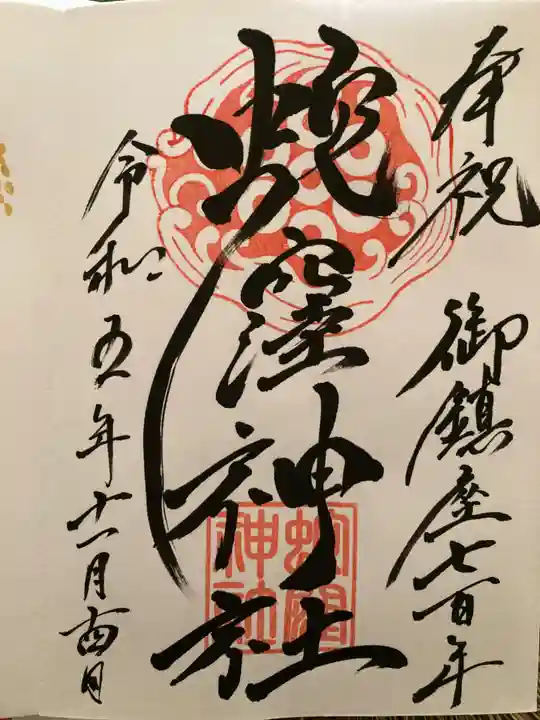 奉祝
御鎮座七百年
蛇窪神社
蛇窪神社
令和五年十一月十四日